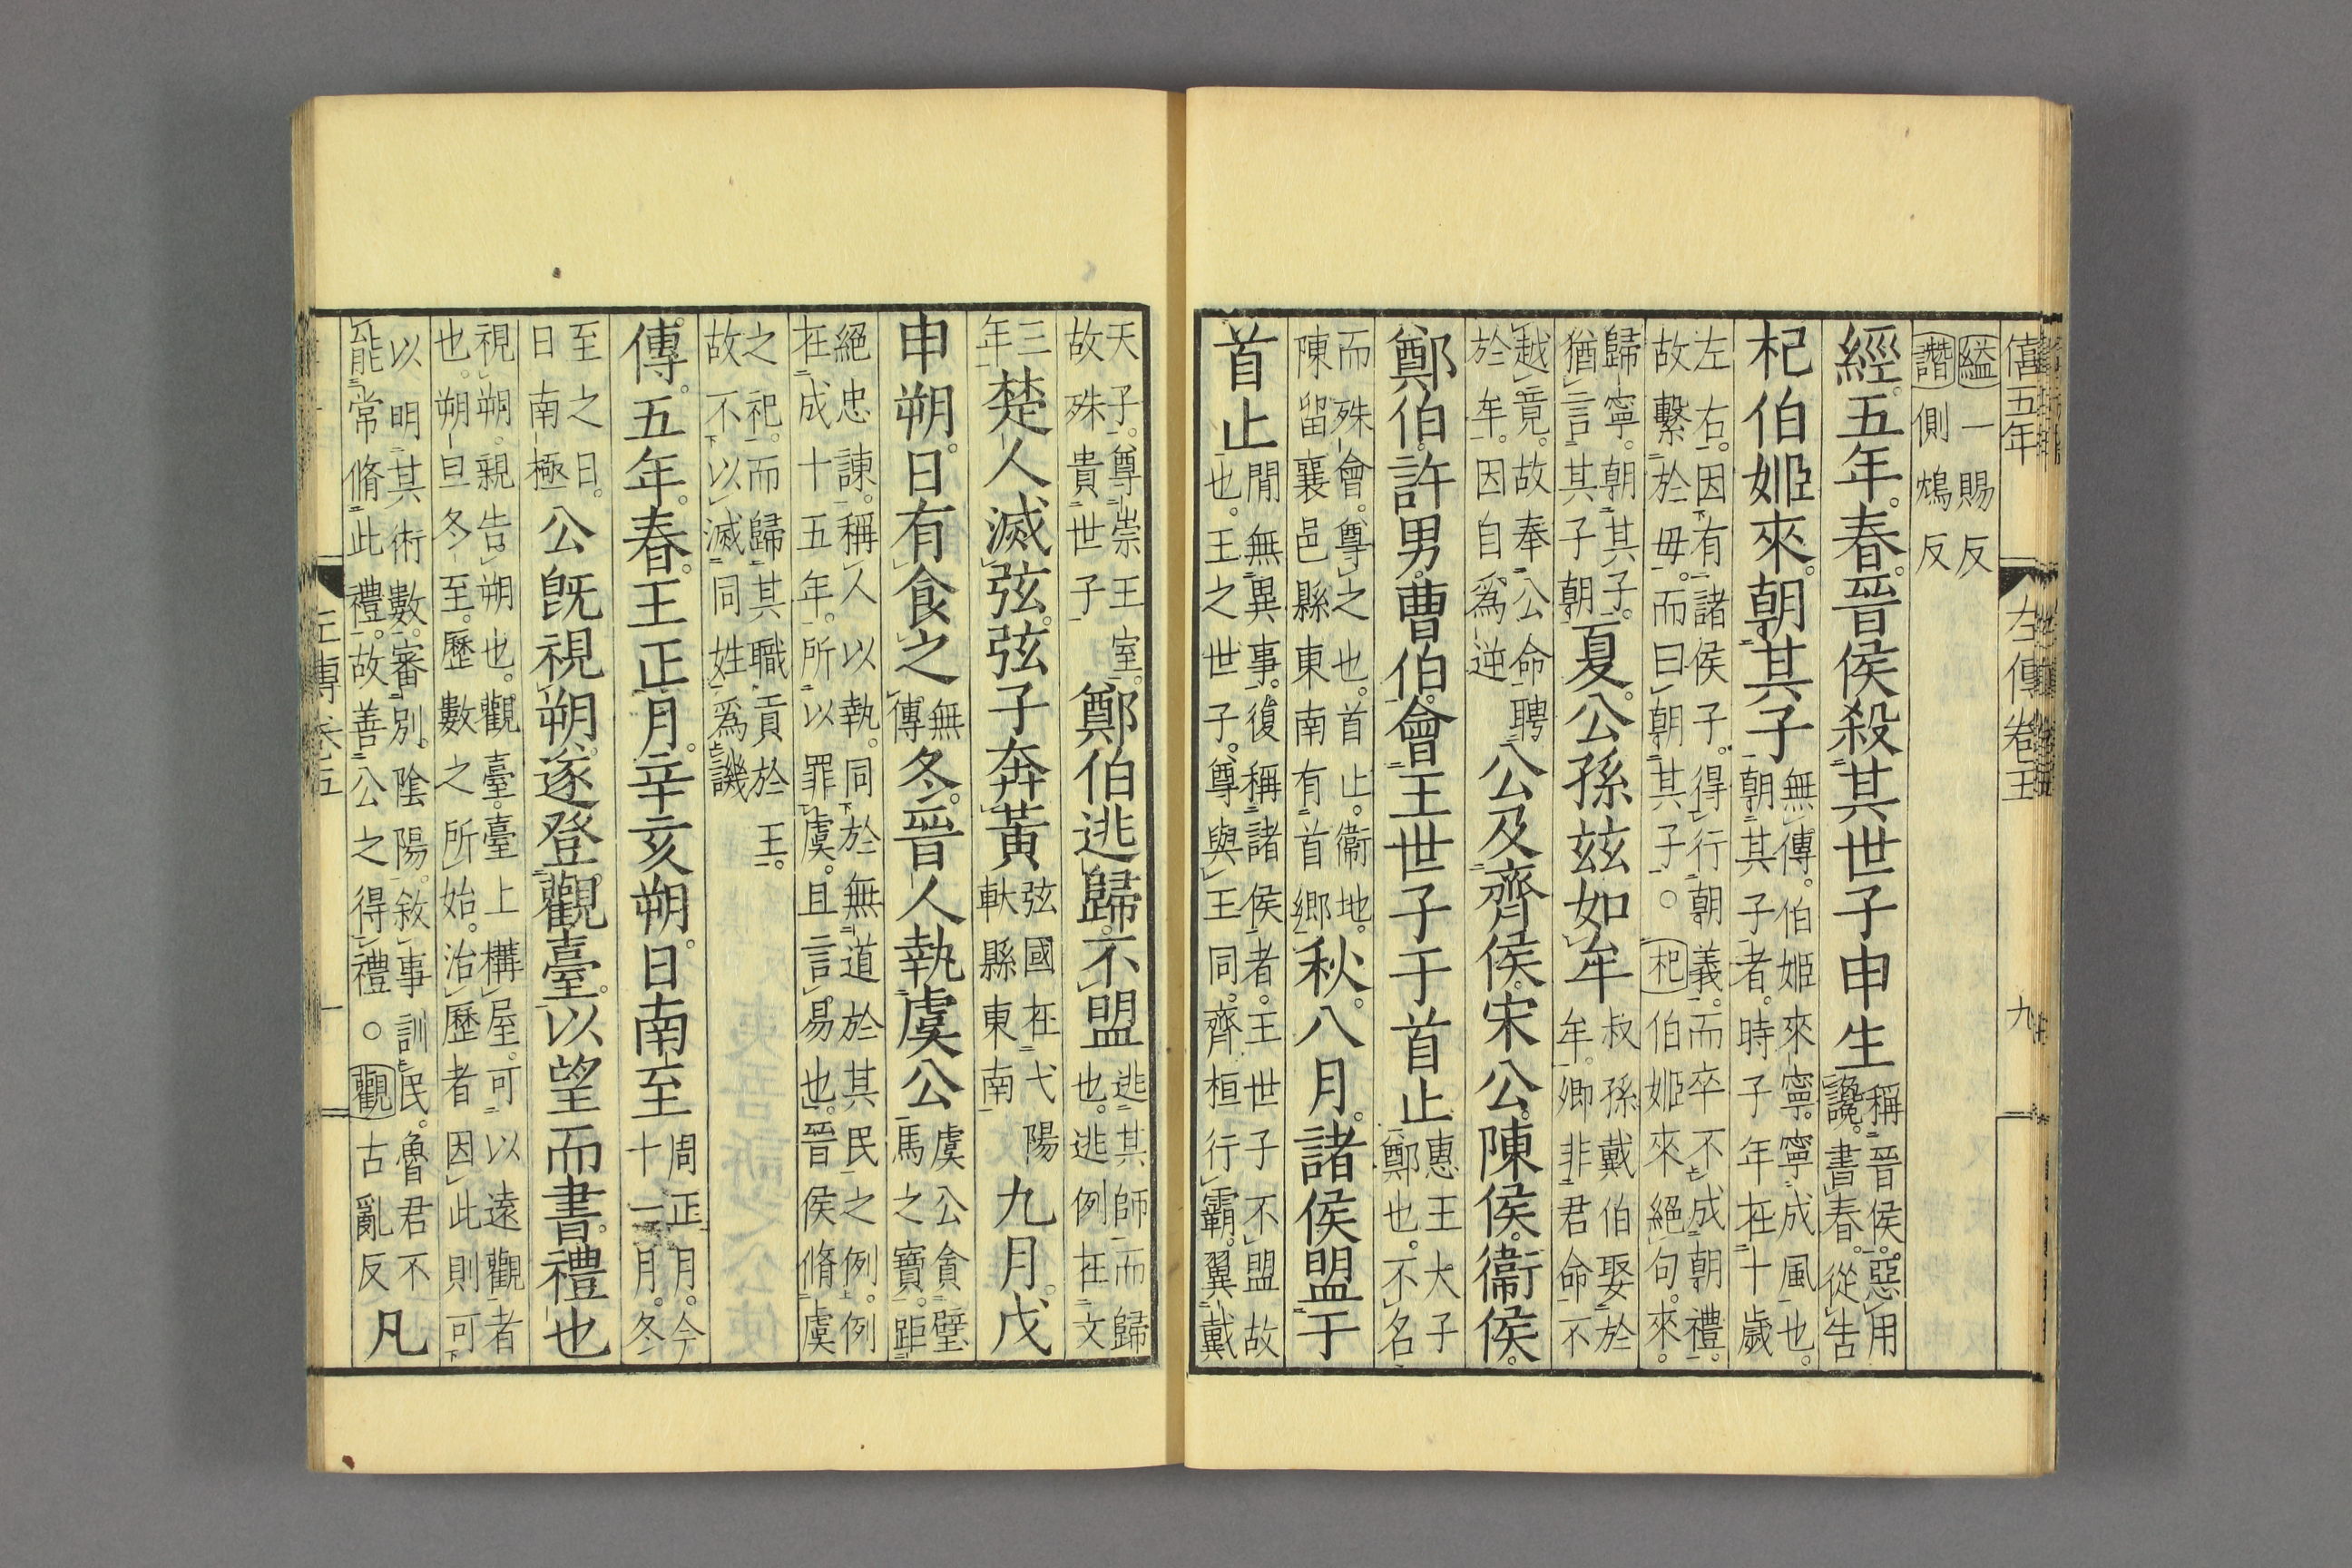 僖五年　左傳卷五　九
縊一賜反
譖側鴆反
經。五年。春。晉侯殺其世子申生稱晉侯。惡用讒。書春。從告
杞伯姬來。朝其子無傳。伯姬來寧。寧成風也。朝其子者。時子年在十歲
左右。因有諸侯子。得行朝義。而卒不成朝禮。故繫於毋。而曰朝其子。○杞伯姬來絕句。來。
歸寧。朝其子。猶言其子朝夏。公孫茲如牟叔孫戴伯娶於牟。卿非君命不
越竟。故奉公命聘於牟。因自爲逆公及齊侯。宋公。陳侯。衞侯。
鄭伯。許男。曹伯。會王世子于首止惠王大子鄭也。不名
而殊會。尊之也。首止。衞地。陳留襄邑縣東南有首鄉秋。八月。諸侯盟于
首止閒無異事。復稱諸侯者。王世子不盟故也。王之世子。尊與王同。齊桓行霸。翼戴
天子。尊崇王室。故殊貴世子鄭伯逃歸。不盟逃其師而歸也。逃例在文
三年楚人滅弦。弦子奔黃弦國在弋陽軑縣東南九月。戊
申朔。日有食之無傳冬。晉人執虞公虞公貪璧馬之寶。距
絕忠諫。稱人以執。同於無道於其民之例。例在成十五年。所以罪虞。且言易也。晉侯脩虞
之祀。而歸其職貢於王。故不以滅同姓爲譏
傳。五年。春。王正月。辛亥朔。日南至周正月。今十一月。冬
至之日。日南極公既視朔。遂登觀臺。以望而書。禮也
視朔。親告朔也。觀臺。臺上構屋。可以遠觀者也。朔旦冬至。歷數之所始。治歷者因此則可
以明其術數。審別陰陽。敘事訓民。魯君不能常脩此禮。故善公之得禮。○觀古亂反凡
左傳卷五